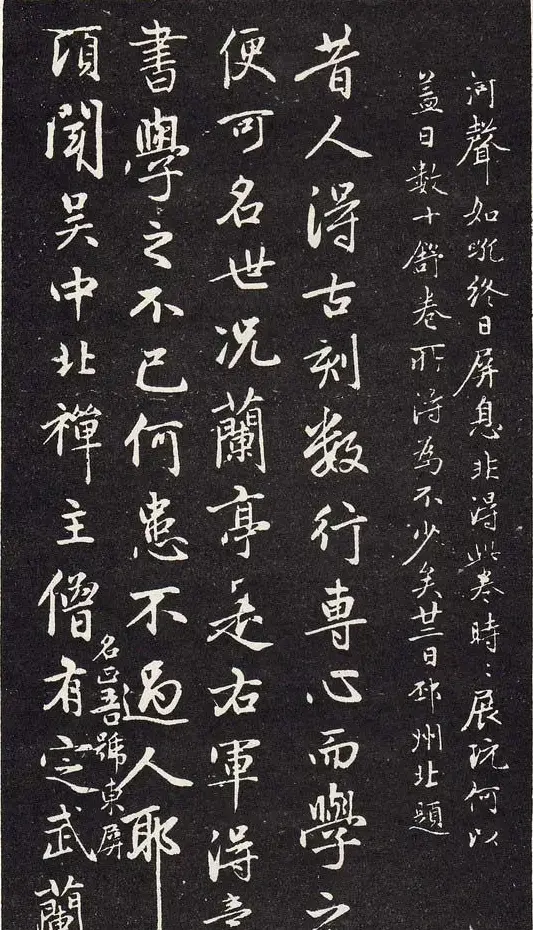 河聲如吼終日屏息非得此卷時〻展玩何以
蓋日數十舒卷所得為不少矣廿三日邳州北題
昔人得古刻數行專心而學之
便可名世况蘭亭是右軍得意
書學之不已何患不過人耶
頃聞吳中北禪主僧有定武蘭
名正吾號東屏